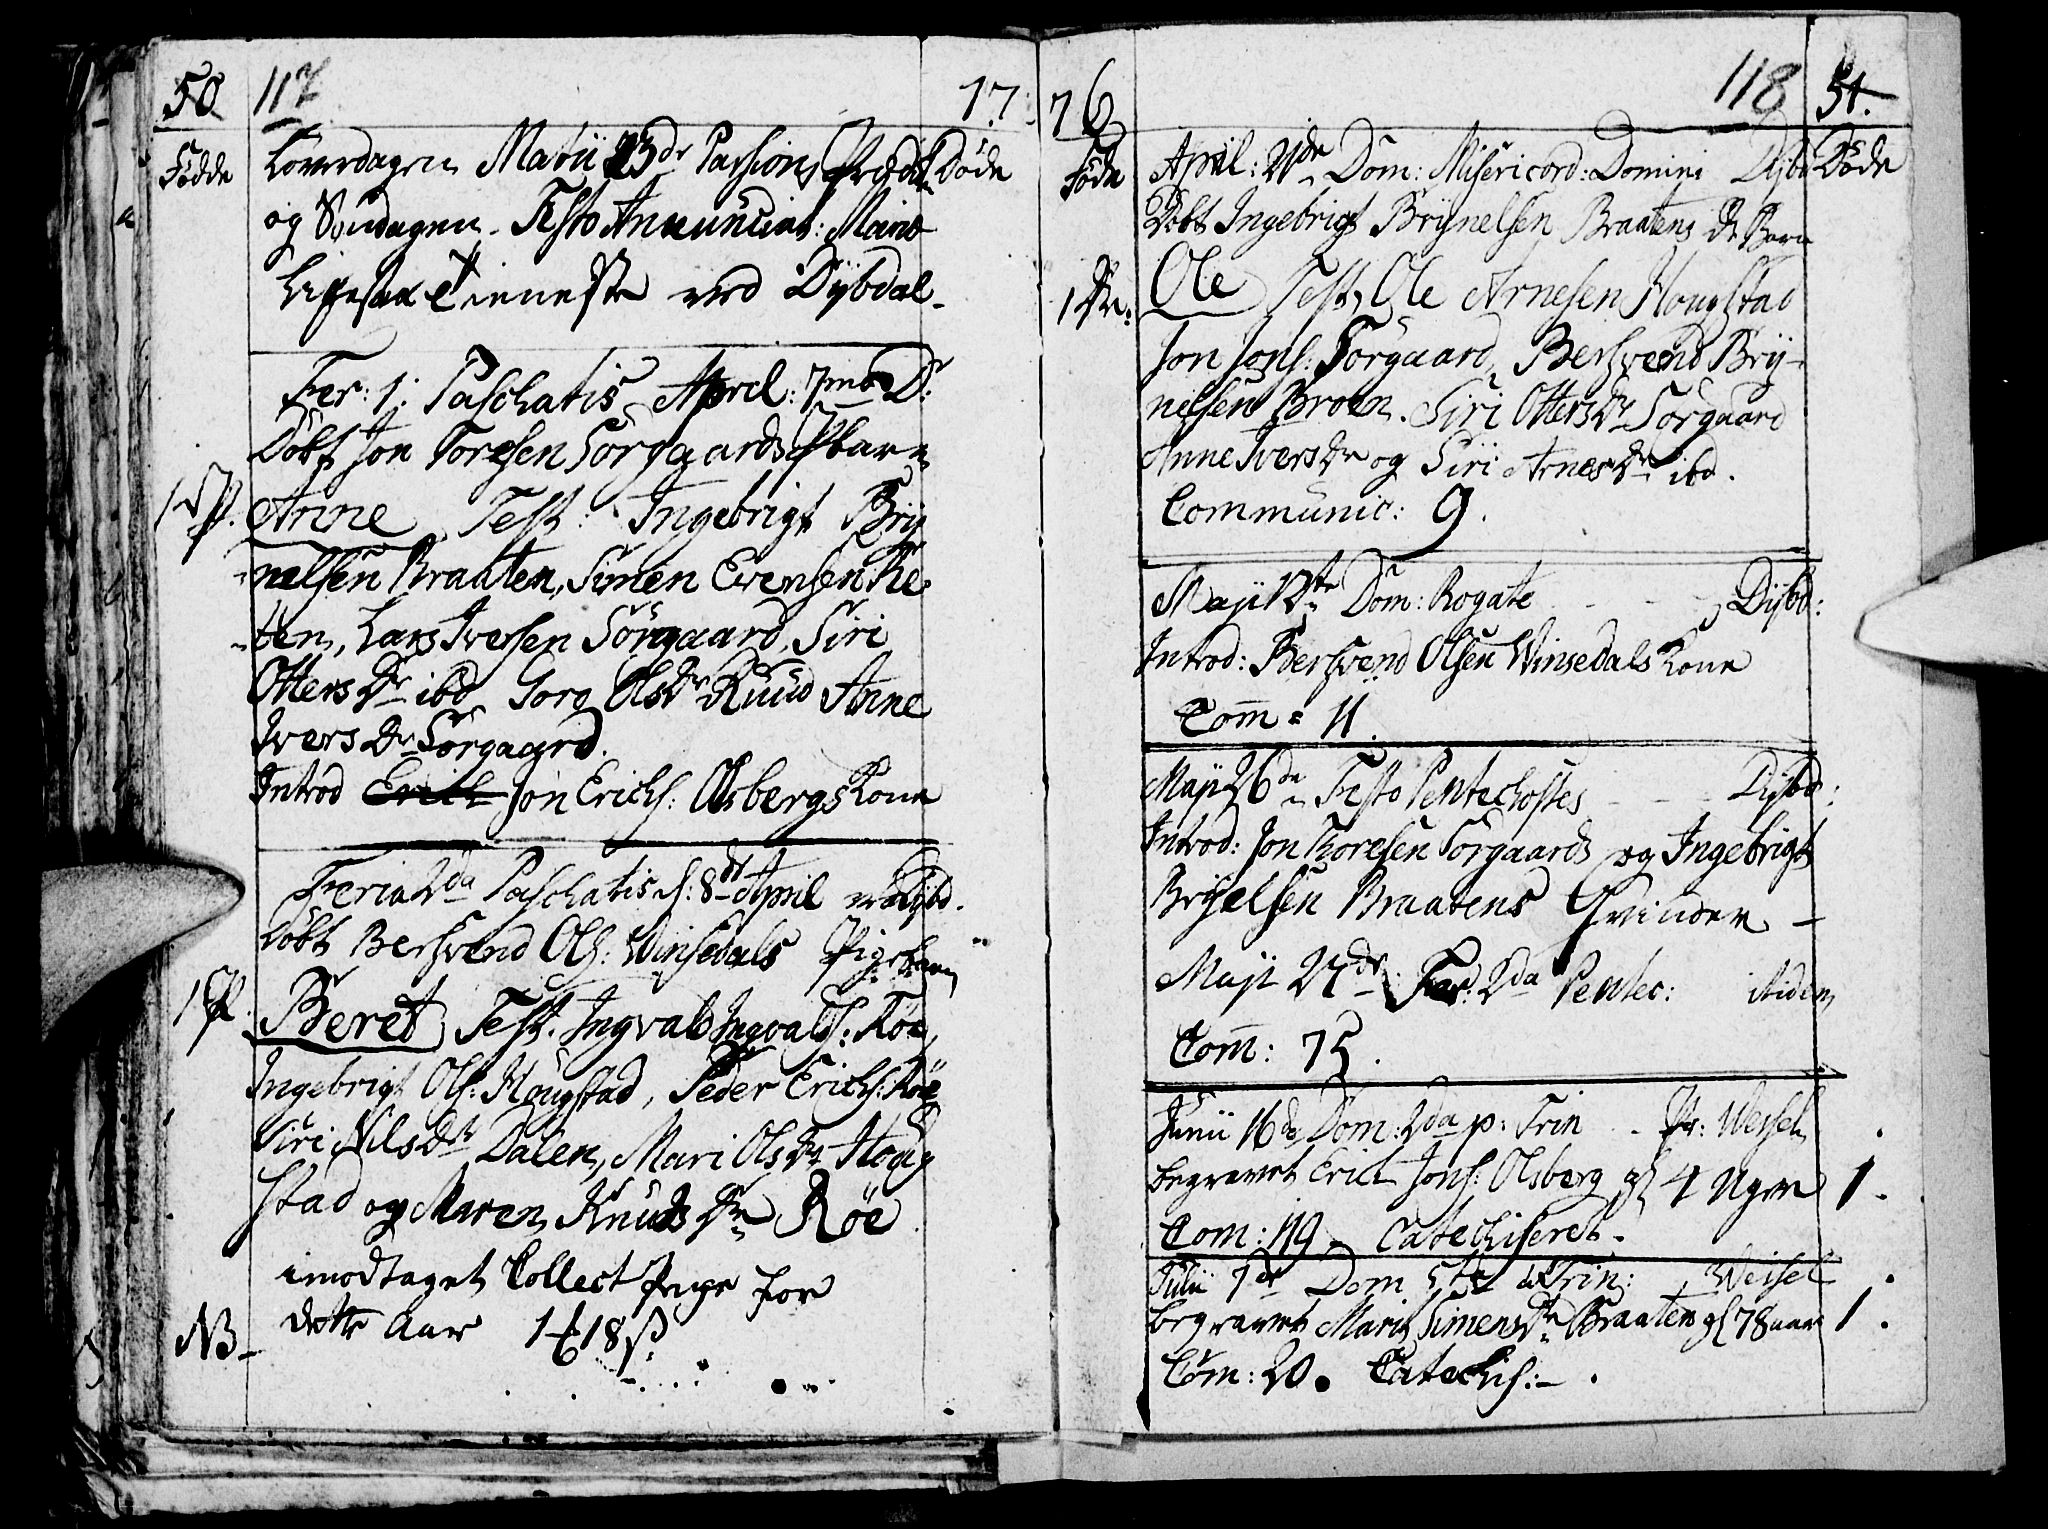 50 117 17
Födde Löverdagen Martii 23de Passions Prædiken Döde
og Söndagen. Festo Annunciat: Mariæ
Ligesaa Tieneste ved Dÿbdal-
Fer: 1. Paschatis April: 7me D:
Döbt Jon Toresen Sörgaards Pbarn
1 P. Anne Test: Ingebrigt Brÿ
nelsen Braaten, Simen Evensen Ple
ten, Lars Iversen Sörgaard, Siri
Otters Dr ibd Goro Ols Dr Ruud Anne
Ivers Dr Sörgaard.
Introd Erich Jon Erichs: Olsbergs Kone
Feria 2da Paschatis d: 8de April ved Dÿbd.
Döbt Bersvend Ols: Winsedals Pigebarn
1 P. Beret Test. Ingvald Ingvalds: Röe,
Ingebrigt Ols: Hougstad, Peder Erichs: Röe
Siri Nils Dr Dalen, Mari Ols Dr Houg
stad og Maren Knuds Dr Röe
imodtaget Collect Penge for
NB- dette Aar 18 ß
76 118 51.
Föde April: 21de Dom: Misericord: Domini Dÿbd Döde
Döbt Ingebrigt Brÿnelsen Braatens Dr Barn
1 Dr: Ole Test, Ole Arnesen Hougstad
Jon Jons: Sörgaard, Bersvend Brÿ-
nelsen Broen. Siri Otters Dr Sörgaard
Anne Ivers Dr og Siri Arnes Dr ibd.
Communic: 9.
Maji 12te Dom: Rogate - - - Dÿbd:
Introd: Bersvend Olsen Winsedals Kone
Com̄ = 11.
Maji 26de Festo Pentechostes - - - Dÿbd:
Introd: Jon Toresen Sörgaards og Ingebrigt
Brÿelsen Braatens Qvinder -
Maji 27de Fer: 2da Pentec: ibidem
Com̄: 75.
Junii 16de Dom: 2da p: Trin - Pr: Wessel
begravet Erich Jons: Olsberg gl 4 Uger 1.
Com: 119 - Catechiseret -
Julii 7de Dom 5te Trin: Wessel
begravet Marit Simens Dr Braaten gl 78 aar 1.
Com: 20. Catechis: -